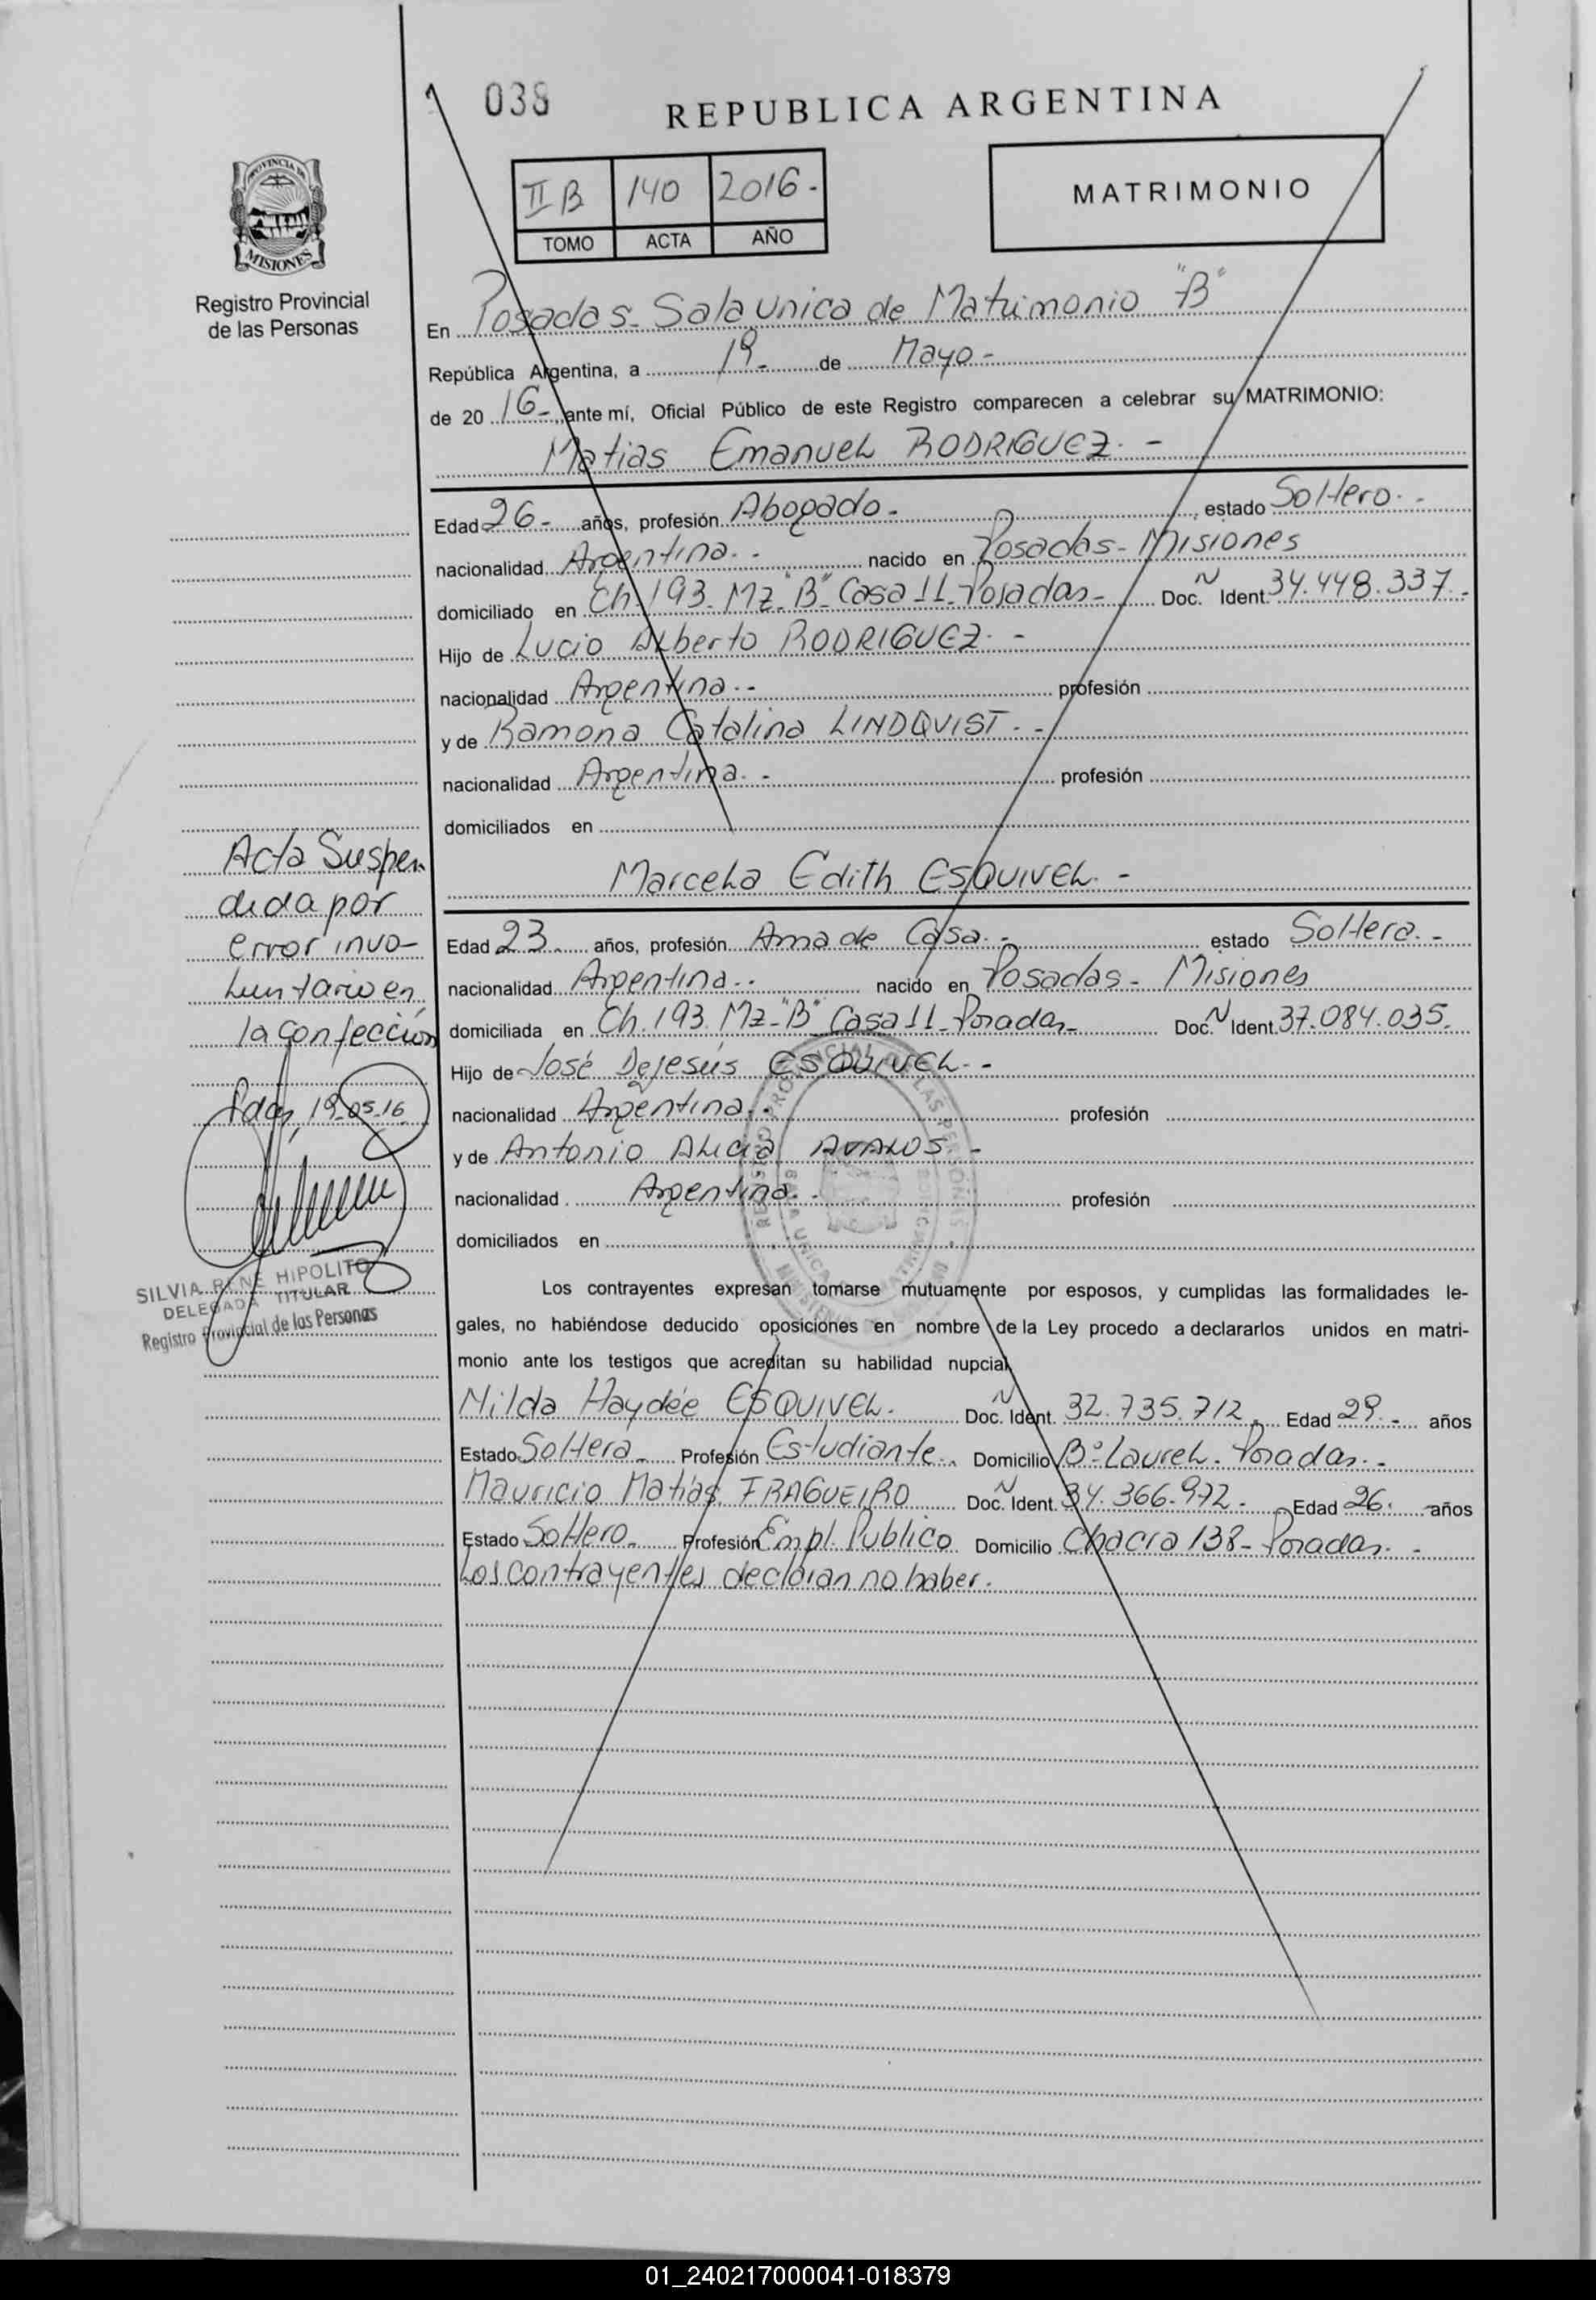 038
REPUBLICA ARGENTINA
PROVINCIA DE
MISIONES
Registro Provincial
de las Personas
II B 140 2016.-
TOMO ACTA AÑO
MATRIMONIO
En Posadas- Sala Unica de Matrimonio "B"
República Argentina, a 19- de Mayo-
de 20 16-, ante mí, Oficial Público de este Registro comparecen a celebrar su MATRIMONIO:
Matias Emanuel RODRIGUEZ.-
Edad 26- años, profesión Abogado.- estado Soltero.-
nacionalidad Argentina.- nacido en Posadas- Misiones
domiciliado en Ch.193- Mz-"B"- Casa 11- Posadas- Doc. N Ident. 34.448.337.-
Hijo de Lucio Alberto RODRIGUEZ.-
nacionalidad Argentina.- profesión
y de Ramona Catalina LINDQVIST.-
nacionalidad Argentina.- profesión
domiciliados en
Marcela Edith ESQUIVEL.-
Edad 23 años, profesión Ama de Casa.- estado Soltera.-
nacionalidad Argentina.- nacido en Posadas- Misiones
domiciliada en Ch.193. Mz-"B" Casa 11- Posadas- Doc. N Ident. 37.084.035.
Hijo de José Dejesús ESQUIVEL.-
nacionalidad Argentina.- profesión
y de Antonio Alicia AVALOS-
nacionalidad Argentina.- profesión
domiciliados en
Los contrayentes expresan tomarse mutuamente por esposos, y cumplidas las formalidades le-
gales, no habiéndose deducido oposiciones en nombre de la Ley procedo a declararlos unidos en matri-
monio ante los testigos que acreditan su habilidad nupcial
Nilda Haydée ESQUIVEL. Doc. N Ident. 32.735.712- Edad 29.- años
Estado Soltera- Profesión Estudiante.. Domicilio B° Laurel- Posadas.-
Mauricio Matías FRAGUEIRO Doc. N Ident. 34.366.972- Edad 26. años
Estado Soltero- Profesión Empl. Publico Domicilio Chacra 138- Posadas.-
Los contrayentes declaran no haber.
Acta Suspen
dida por
error invo-
luntario en
la confección
Pdas, 19-05-16
SILVIA RENE HIPOLITO
DELEGADA TITULAR
Registro Provincial de las Personas
REGISTRO PROVINCIAL DE LAS PERSONAS
01_240217000041-018379